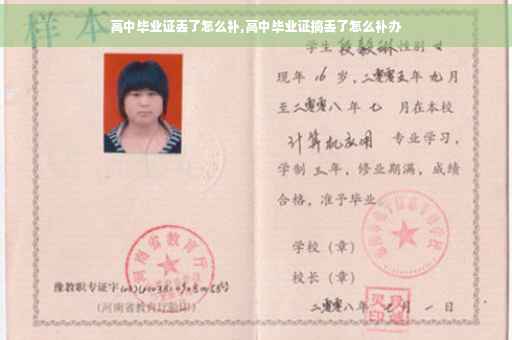 高中毕业证丢了怎么补,高中毕业证摘丢了怎么补办
样本
学生 段毅琳 性别 女
现年 16 岁,二零零五年 九 月
至二零零八年 七 月在本校
计算机应用 专业学习,
学制 三 年,修业期满,成绩
合格,准予毕业
学校(章)
校长(章)
二零零八年 月 一 日
河南省教育厅
豫教职专证字
(河南省教育厅验印)